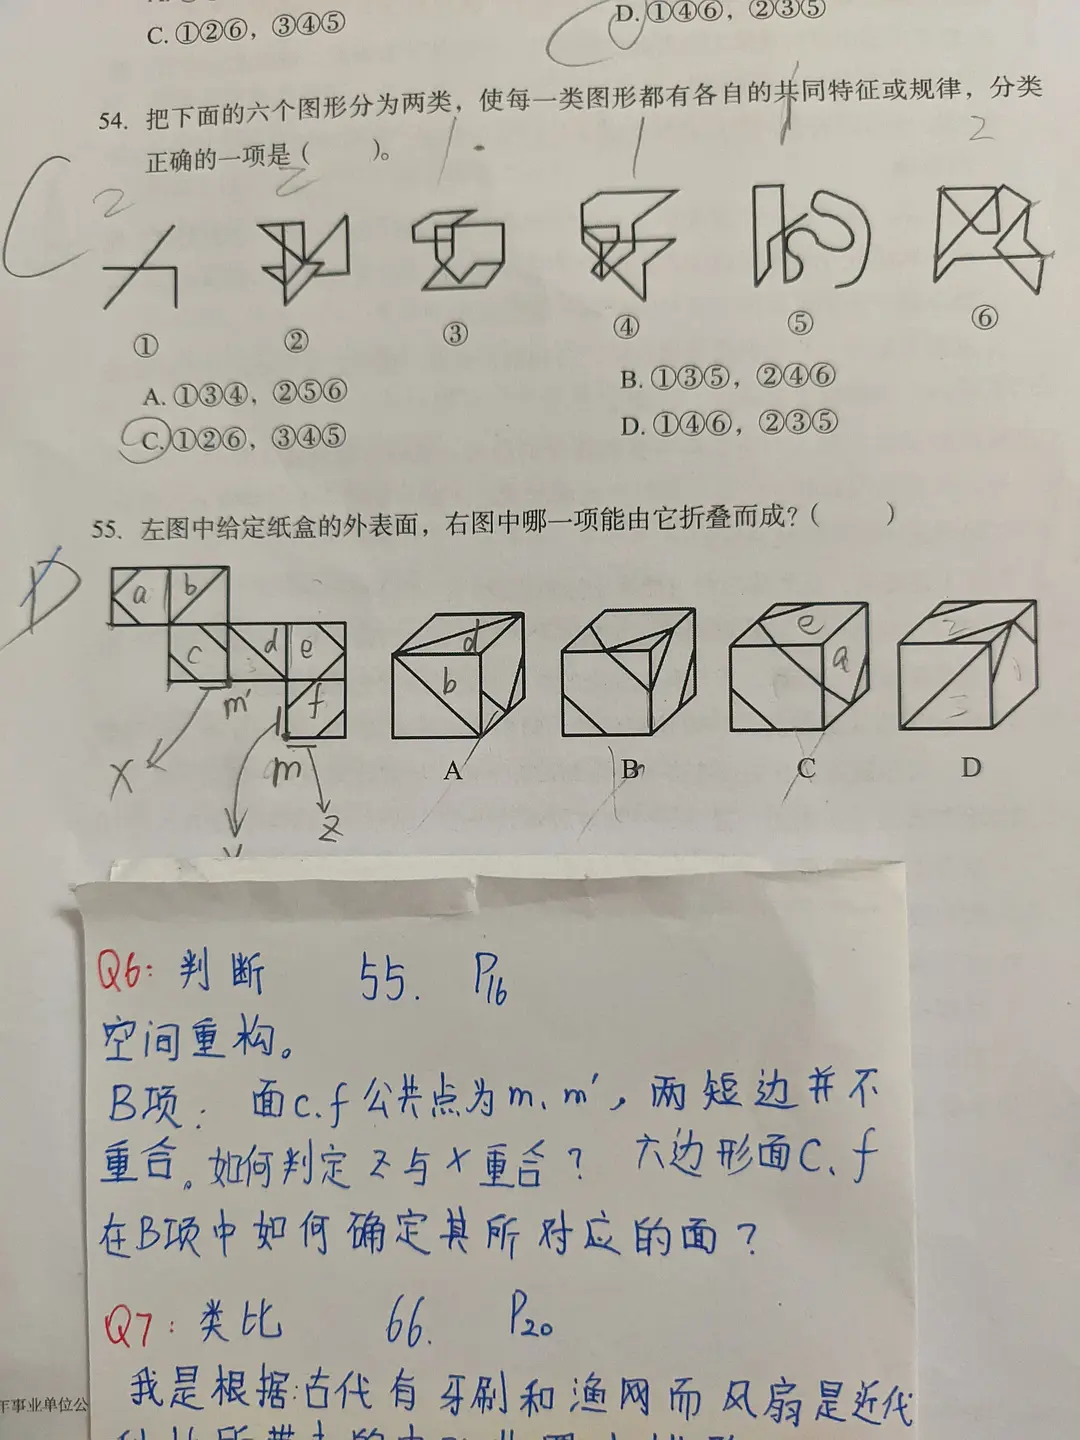 C. ①②⑥，③④⑤
D. ①④⑥，②③⑤
54. 把下面的六个图形分为两类，使每一类图形都有各自的共同特征或规律，分类
正确的一项是（ ）。
2 2 1 1 1 2
① ② ③ ④ ⑤ ⑥
A. ①③④，②⑤⑥
B. ①③⑤，②④⑥
C. ①②⑥，③④⑤
D. ①④⑥，②③⑤
55. 左图中给定纸盒的外表面，右图中哪一项能由它折叠而成？（ ）
D
a b
c d e
f
m′
m
X
Z
d
b
e
a
A B C D
Q6：判断 55. P16
空间重构。
B项：面c.f公共点为m、m′，两短边并不
重合。如何判定Z与X重合？六边形面C、f
在B项中如何确定其所对应的面？
Q7：类比 66. P20
我是根据：古代有牙刷和渔网而风扇是近代
年事业单位公